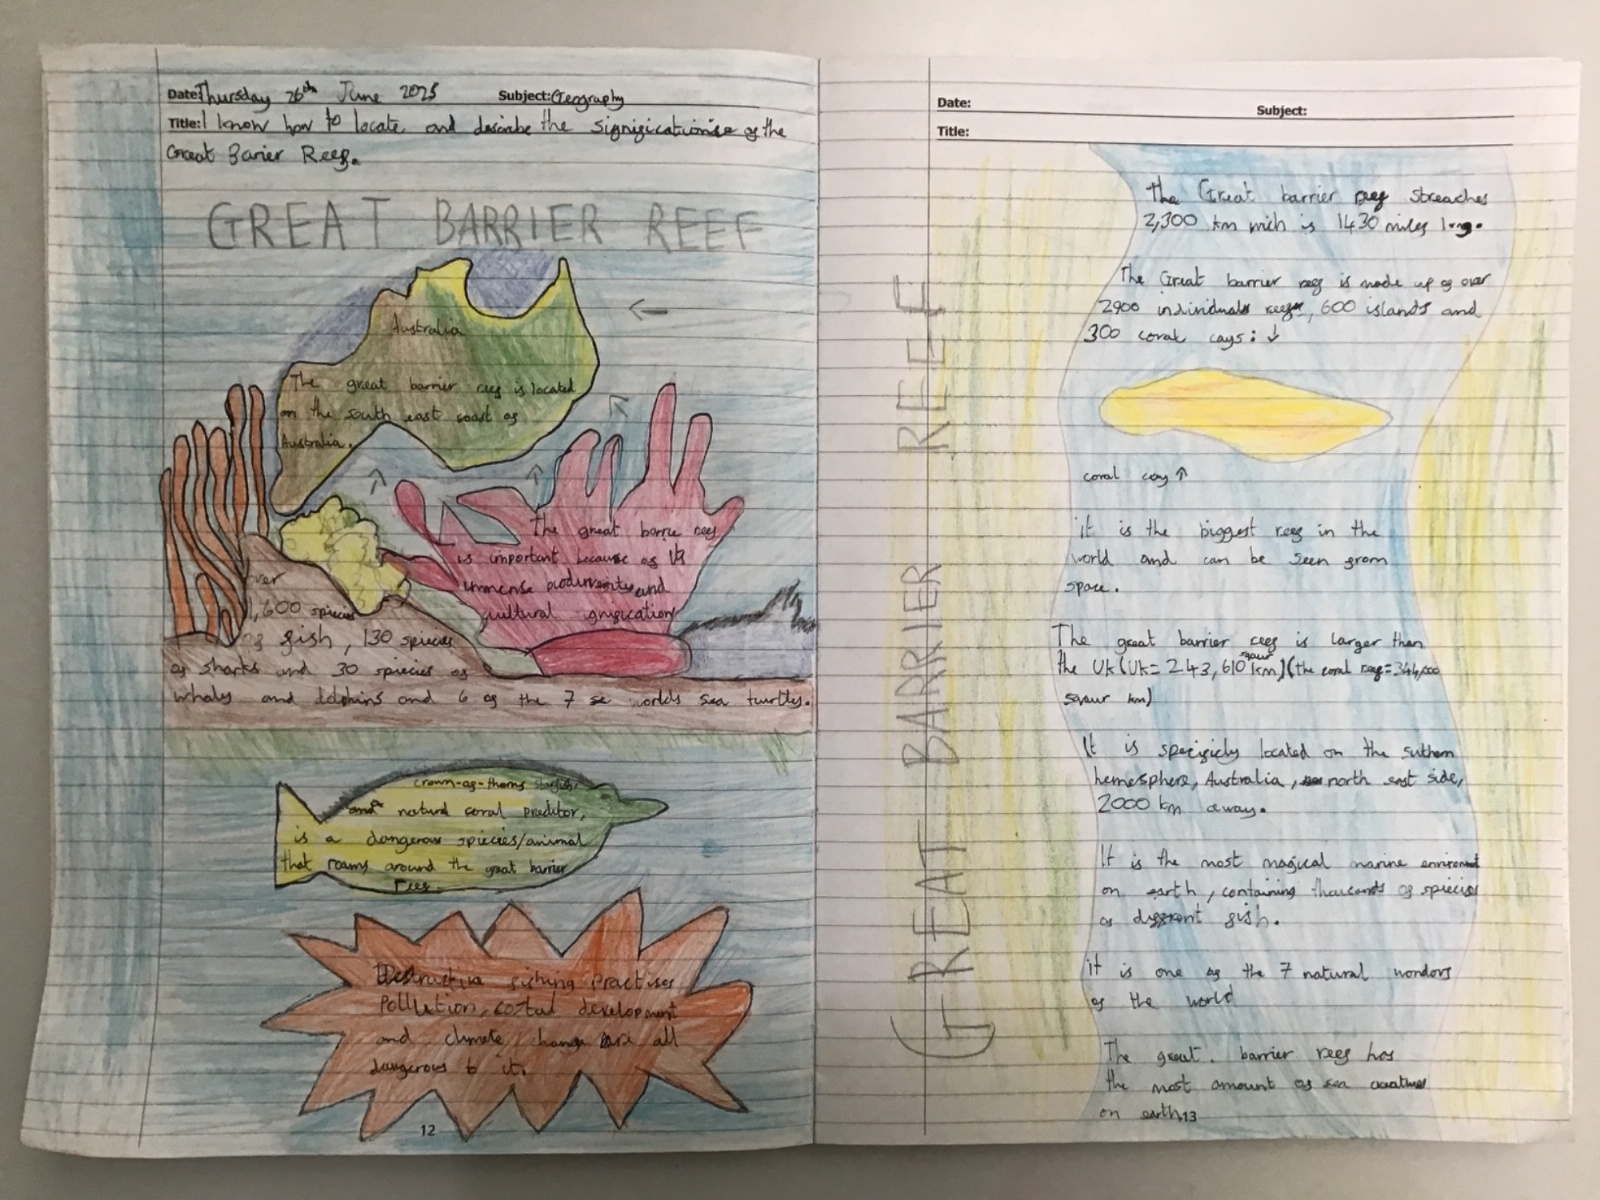 Date: Thursday 26th June 2025 Subject: Geography
Title: I know how to locate and describe the of the
Great Barier Reef.
GREAT BARRIER REEF
Australia
The great barrier reef is located
on the south east coast of
Australia.
The great barrie reef
is important because of
immense and
cultural
1,600 species
of fish, 130 species
of sharks and 30 species of
whales and dolphins and 6 of the 7 se worlds sea turtles.
crown-of-thorns starfish,
natural coral preditor,
is a dangerous spiecies/animal
that roams around the great barrier
reef.
Destructive fishing practises
Pollution, costal development
and climate change are all
dangerous to it.
12
Date: Subject:
Title:
GREAT BARRIER REEF
The Great barrier reef streaches
2,300 km wich is 1430 miles long.
The Great barrier reef is made up of over
2900 individuals reefs, 600 islands and
300 coral cays: ↓
coral cay ↑
it is the biggest reef in the
world and can be seen from
space.
The great barrier reef is larger than
the Uk (Uk = 243,610 squar km) (the coral reef = 344,000
squar km)
It is specificly located on the suthern
hemesphere, Australia, north east side,
2000 km away.
It is the most magical marine
on earth, containing thousands of spiecies
of different fish.
it is one of the 7 natural wondors
of the world
The great. barrier reef has
the most amount of sea creatures
on earth.
13